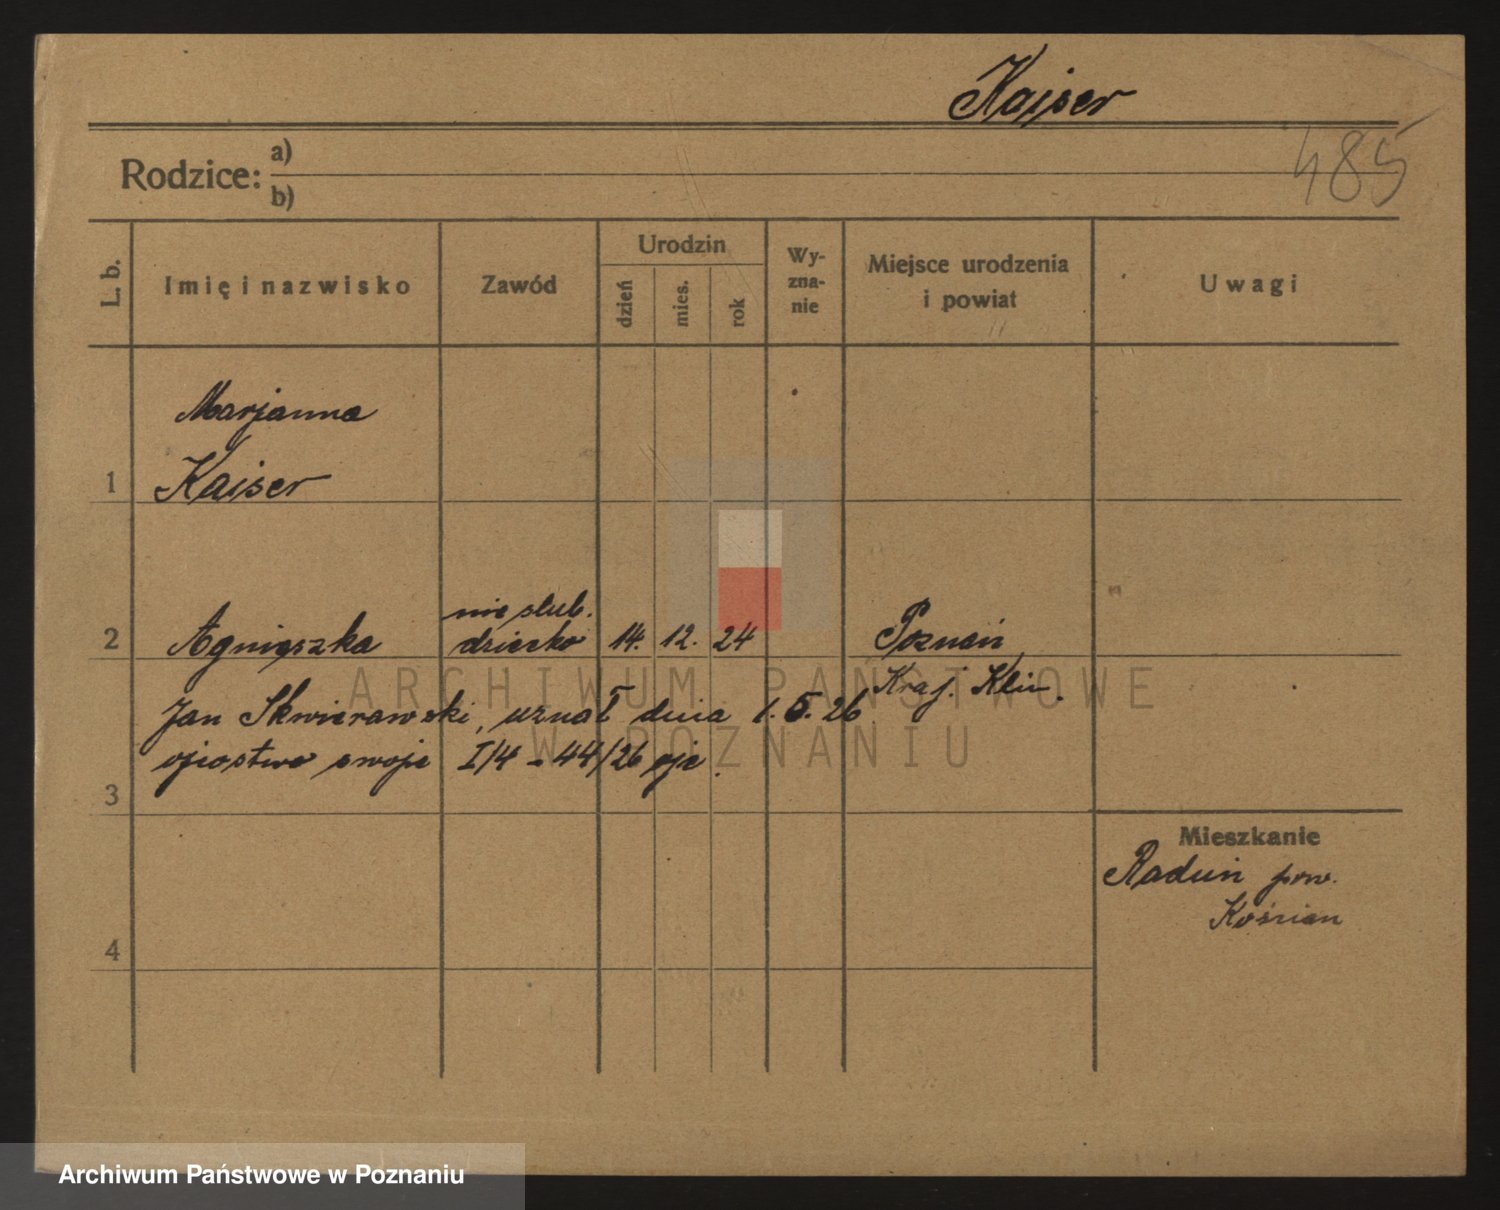 Kajser
485
Rodzice: a)
b)
L. b.
Imię i nazwisko
Zawód
Urodzin
dzień
mies.
rok
Wy-
zna-
nie
Miejsce urodzenia
i powiat
Uwagi
Marjanna
1 Kaiser
nie ślub.
2 Agnieszka dziecko 14. 12. 24 Poznań
Kraj. Klin.
Jan Skwierawski, uznał dnia 1.5.26
ojcostwo swoje I/4 - 44/26 ojc.
3
Mieszkanie
Raduń pow.
Kościan
4
ARCHIWUM PAŃSTWOWE
W POZNANIU
Archiwum Państwowe w Poznaniu